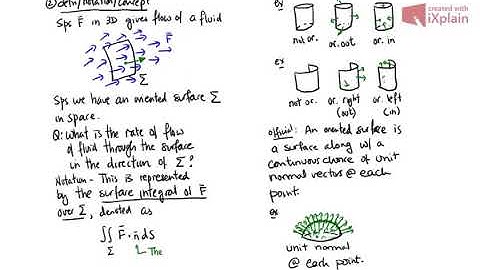 ② defn/notation/concept
Sps F̄ in 3D gives flow of a fluid
F̄
Σ
Sps we have an oriented surface Σ
in space.
Q: What is the rate of flow
of fluid through the surface
in the direction of Σ?
Notation - This is represented
by the surface integral of F̄
over Σ, denoted as
∬ F̄ · n̄ dS
Σ
The
ex
not or.
or. out
or. in
ex
not or.
or. right
(out)
or. left
(in)
official: An oriented surface is
a surface along w/ a
continuous choice of unit
normal vectors @ each
point.
ex
unit normal
@ each point.
created with
iXplain